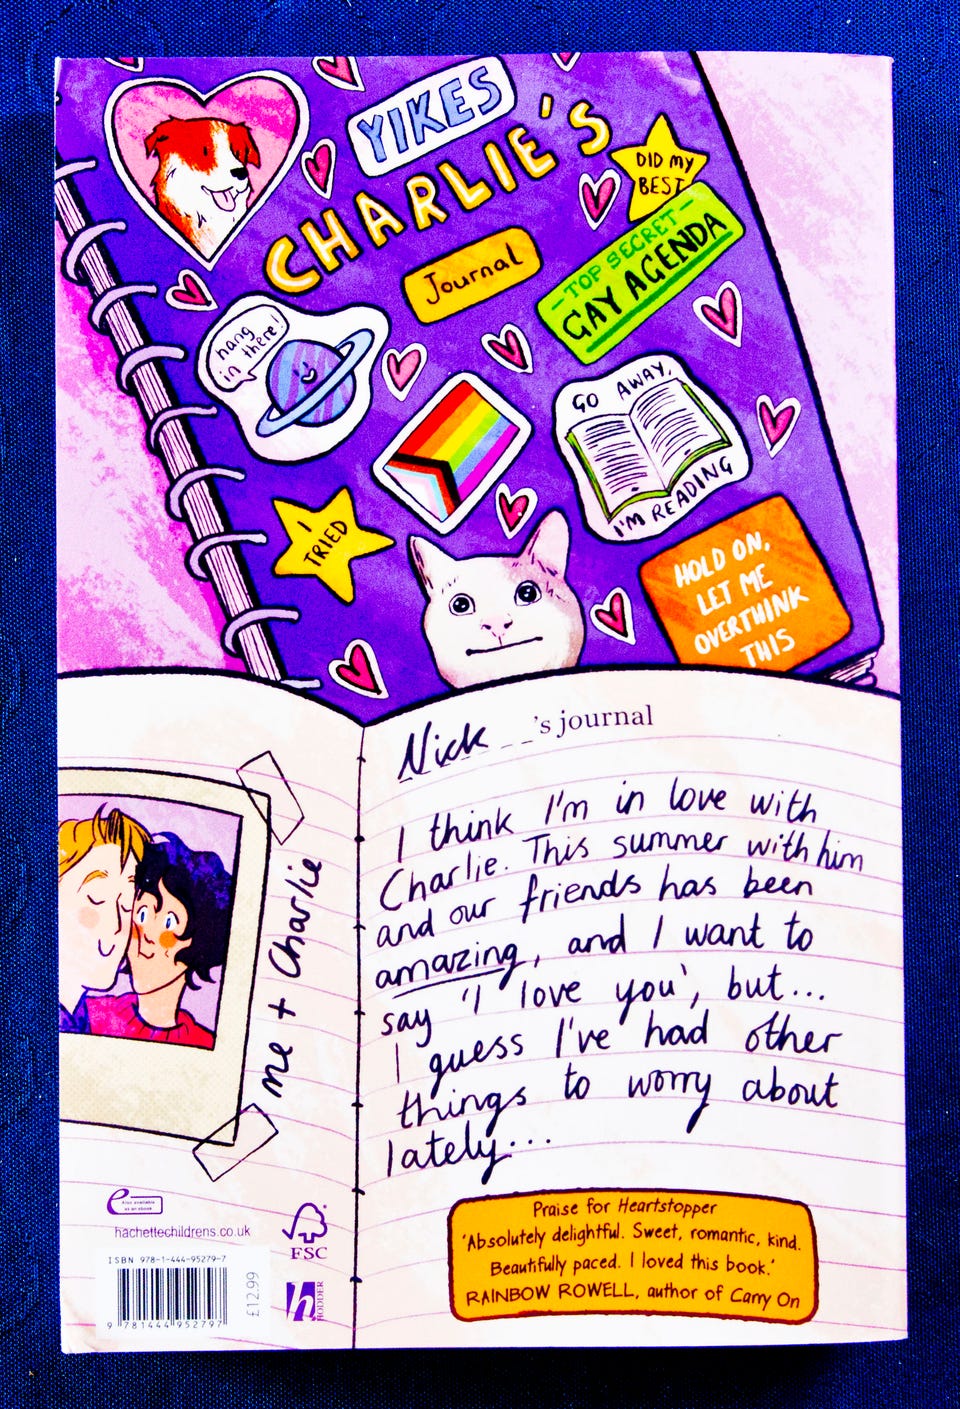 YIKES
CHARLIE'S
Journal
DID MY
BEST
—TOP SECRET—
GAY AGENDA
hang
in there!
GO AWAY,
I'M READING
I
TRIED
HOLD ON,
LET ME
OVERTHINK
THIS
Nick 's journal
I think I'm in love with
Charlie. This summer with him
and our friends has been
amazing, and I want to
say 'I love you', but...
I guess I've had other
things to worry about
lately...
me + Charlie
e Also available
as an ebook
hachettechildrens.co.uk
FSC
ISBN 978-1-444-95279-7
9 781444 952797
£12.99
h HODDER
Praise for Heartstopper
'Absolutely delightful. Sweet, romantic, kind.
Beautifully paced. I loved this book.'
RAINBOW ROWELL, author of Carry On